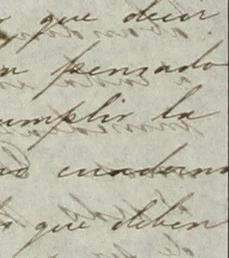 que decir
penzado
cumplir la
cuaderno
que deben